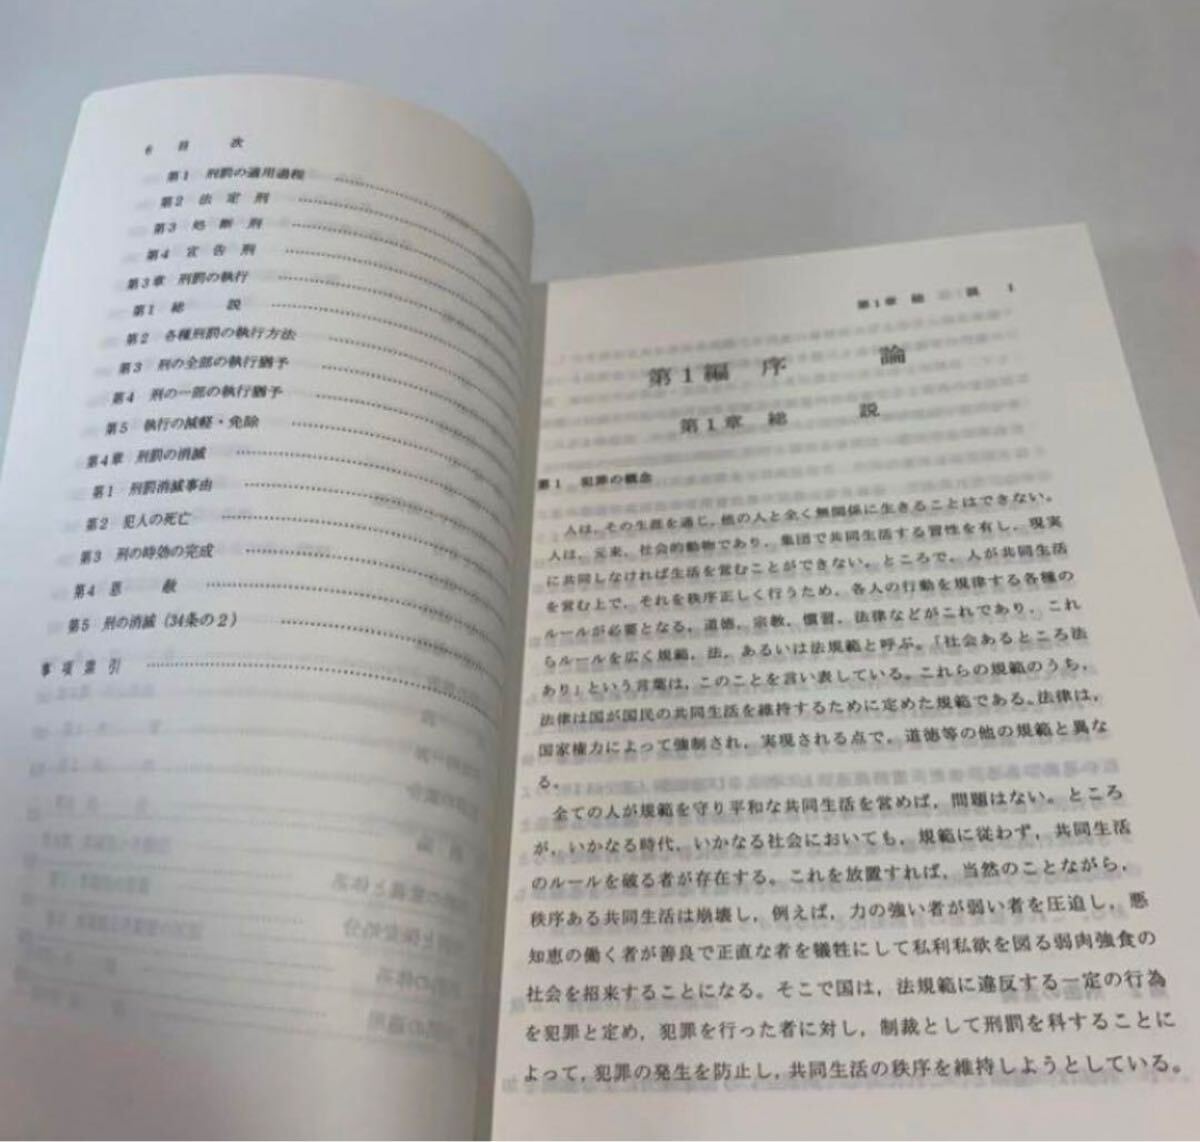 6 目 次
第1 刑罰の適用過程
第2 法定刑
第3 処断刑
第4 宣告刑
第3章 刑罰の執行
第1 総 説
第2 各種刑罰の執行方法
第3 刑の全部の執行猶予
第4 刑の一部の執行猶予
第5 執行の減軽・免除
第4章 刑罰の消滅
第1 刑罰消滅事由
第2 犯人の死亡
第3 刑の時効の完成
第4 恩 赦
第5 刑の消滅(34条の2)
事項索引
第1章 総 説 1
第1編 序 論
第1章 総 説
第1 犯罪の概念
人は,その生涯を通じ,他の人と全く無関係に生きることはできない。
人は,元来,社会的動物であり,集団で共同生活する習性を有し,現実
に共同しなければ生活を営むことができない。ところで,人が共同生活
を営む上で,それを秩序正しく行うため,各人の行動を規律する各種の
ルールが必要となる。道徳,宗教,慣習,法律などがこれであり,これ
らルールを広く規範,法,あるいは法規範と呼ぶ。「社会あるところ法
あり」という言葉は,このことを言い表している。これらの規範のうち,
法律は国が国民の共同生活を維持するために定めた規範である。法律は,
国家権力によって強制され,実現される点で,道徳等の他の規範と異な
る。
全ての人が規範を守り平和な共同生活を営めば,問題はない。ところ
が,いかなる時代,いかなる社会においても,規範に従わず,共同生活
のルールを破る者が存在する。これを放置すれば,当然のことながら,
秩序ある共同生活は崩壊し,例えば,力の強い者が弱い者を圧迫し,悪
知恵の働く者が善良で正直な者を犠牲にして私利私欲を図る弱肉強食の
社会を招来することになる。そこで国は,法規範に違反する一定の行為
を犯罪と定め,犯罪を行った者に対し,制裁として刑罰を科することに
よって,犯罪の発生を防止し,共同生活の秩序を維持しようとしている。